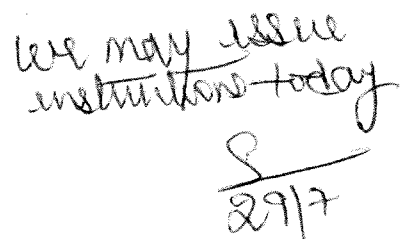 we may issue
instructions today
29/7